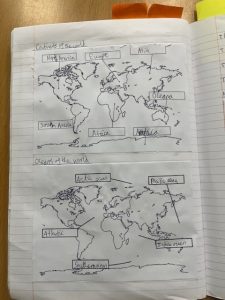 Continents of the world
North America
Europe
Asia
Oceania
South America
Africa
Oceans of the world
Arctic Ocean
Pacific Ocean
Atlantic
Indian Ocean
Southern Ocean